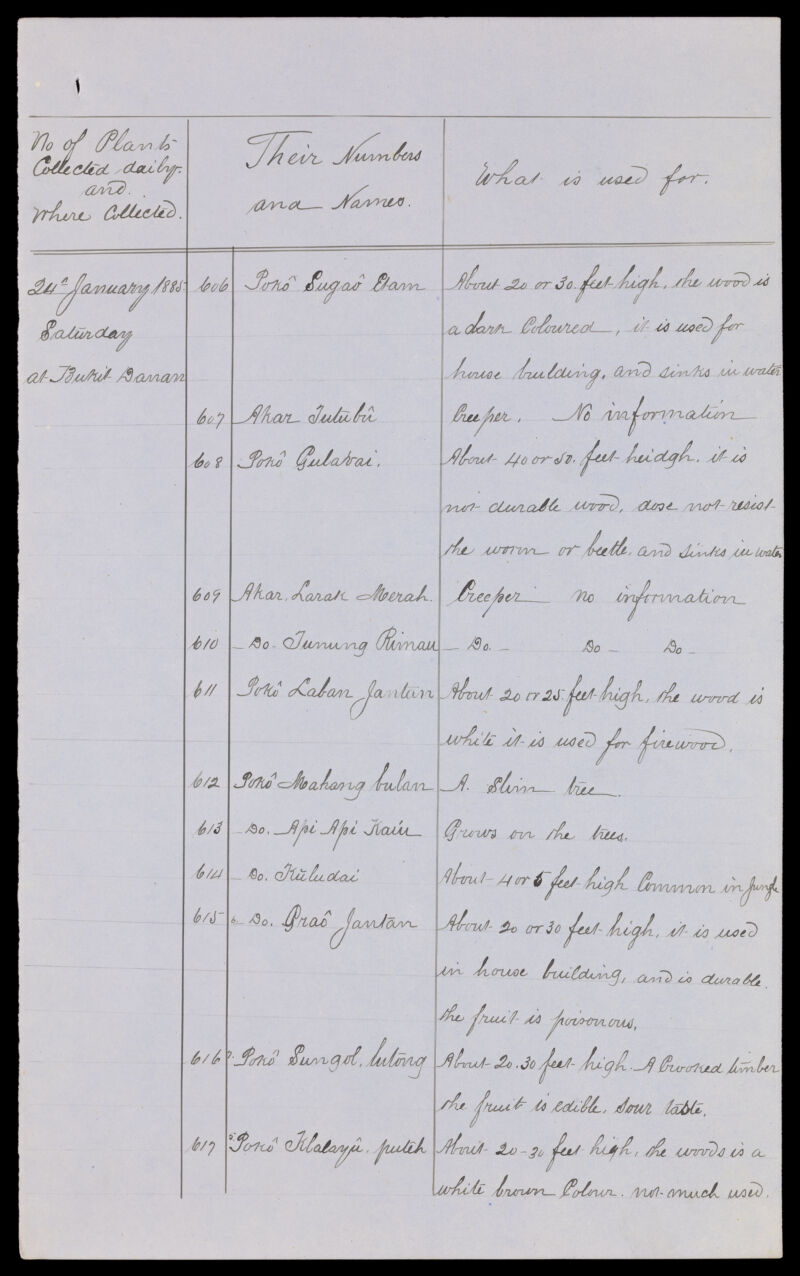 No of Plants
Collected daily.
and
Where Collected.
Their Numbers
and Names.
What is used for.
24th January 1885
Saturday
at Bukit Danan
606 Pokô Sugaô Etam About 20 or 30 feet high, the wood is
a dark Coloured, it is used for
house building, and sinks in water
607 Akar Tutubû Creeper. No information
608 Pokô Gulavai. About 40 or 50. feet heidgh. it is
not durable wood, dose not resist
the worm or beetle, and sinks in water
609 Akar. Larak Merah. Creeper no information
610 Do. Tunung Rimau Do. Do Do
611 Pokô Laban Jantan About 20 or 25. feet high, the wood is
white it is used for firewood.
612 Pokô Mahang bulan A. Slim tree.
613 Do. Api Api Kaiu Grows on the trees.
614 Do. Kuludai About 4 or 5 feet high Common in Jungle
615 Do. Praô Jantan About 20 or 30 feet high, it is used
in house building, and is durable.
the fruit is poisonous.
616 Pokô Sungol. lutong About 20. 30 feet high. A Crooked timber
the fruit is edible, sour taste.
617 Pokô Klalayû. puteh About 20 - 30 feet high, the woods is a
white brown Colour. not much used.